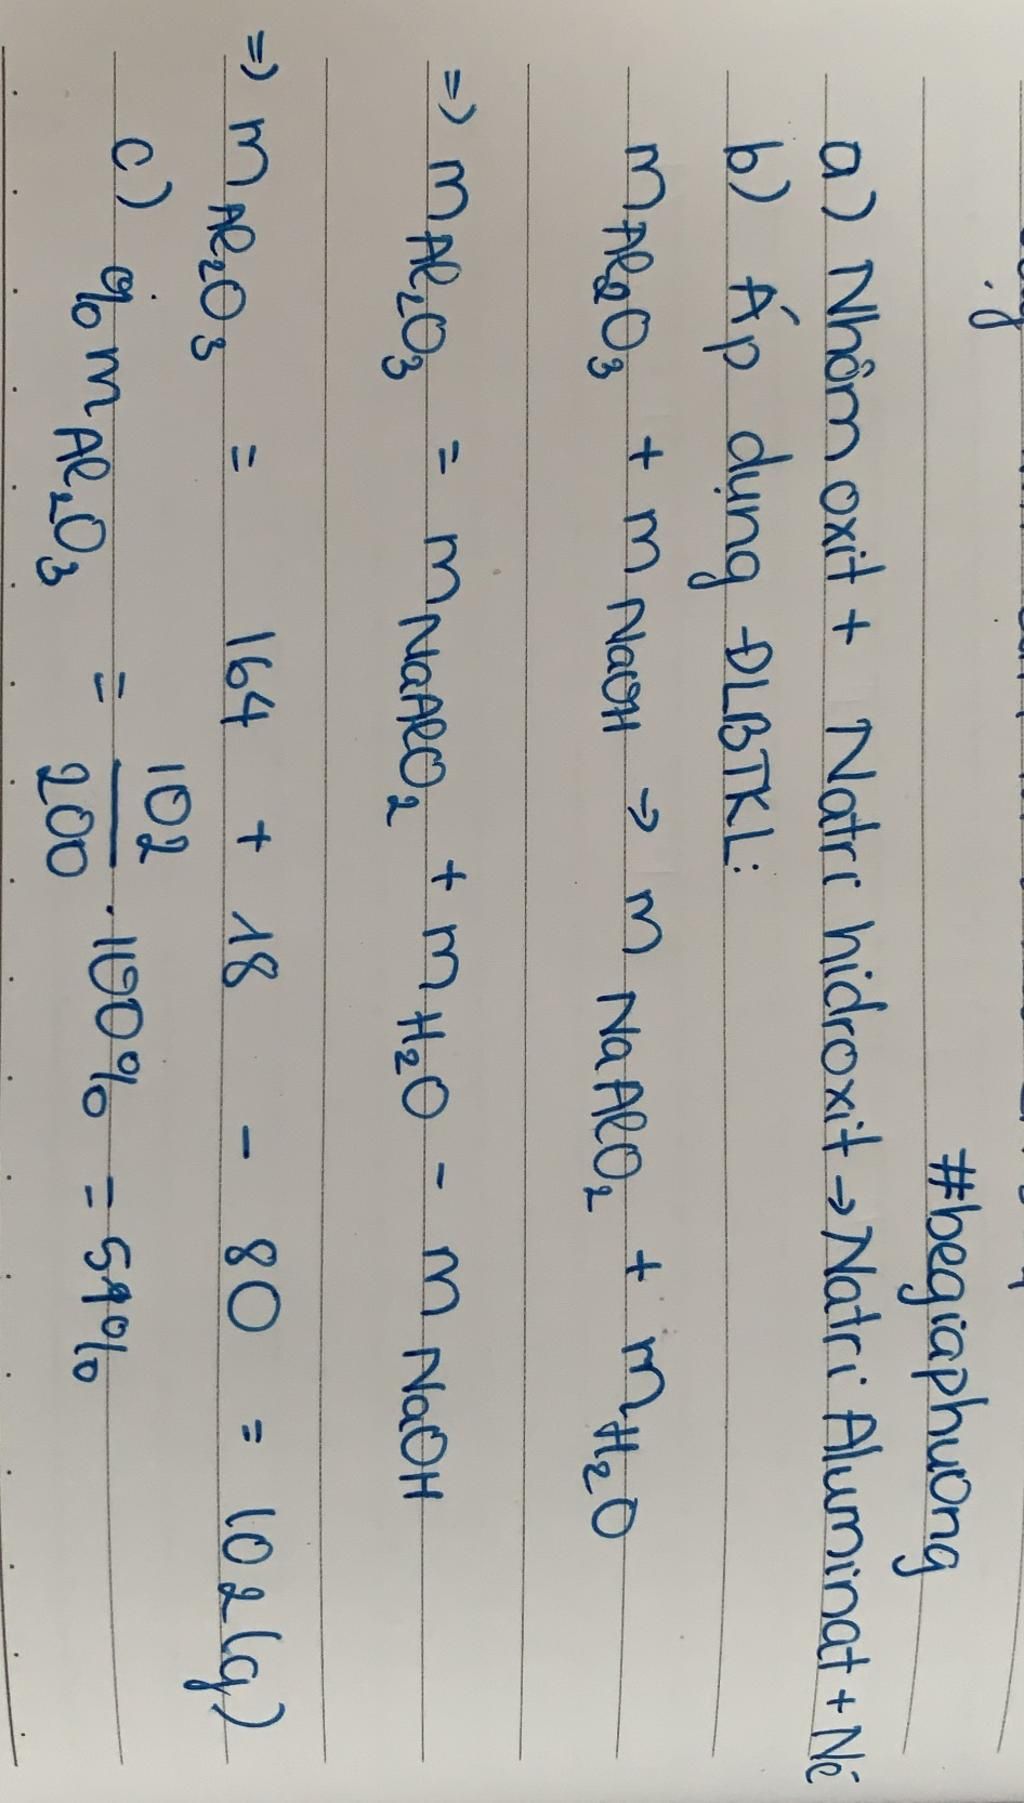 #begiaphuong
a) Nhôm oxit + Natri hidroxit → Natri Aluminat + Nc
b) Áp dụng ĐLBTKL:
m Al₂O₃ + m NaOH → m NaAlO₂ + m H₂O
=) m Al₂O₃ = m NaAlO₂ + m H₂O - m NaOH
=) m Al₂O₃ = 164 + 18 - 80 = 102 (g)
c) % m Al₂O₃ = 102/200 . 100% = 51%